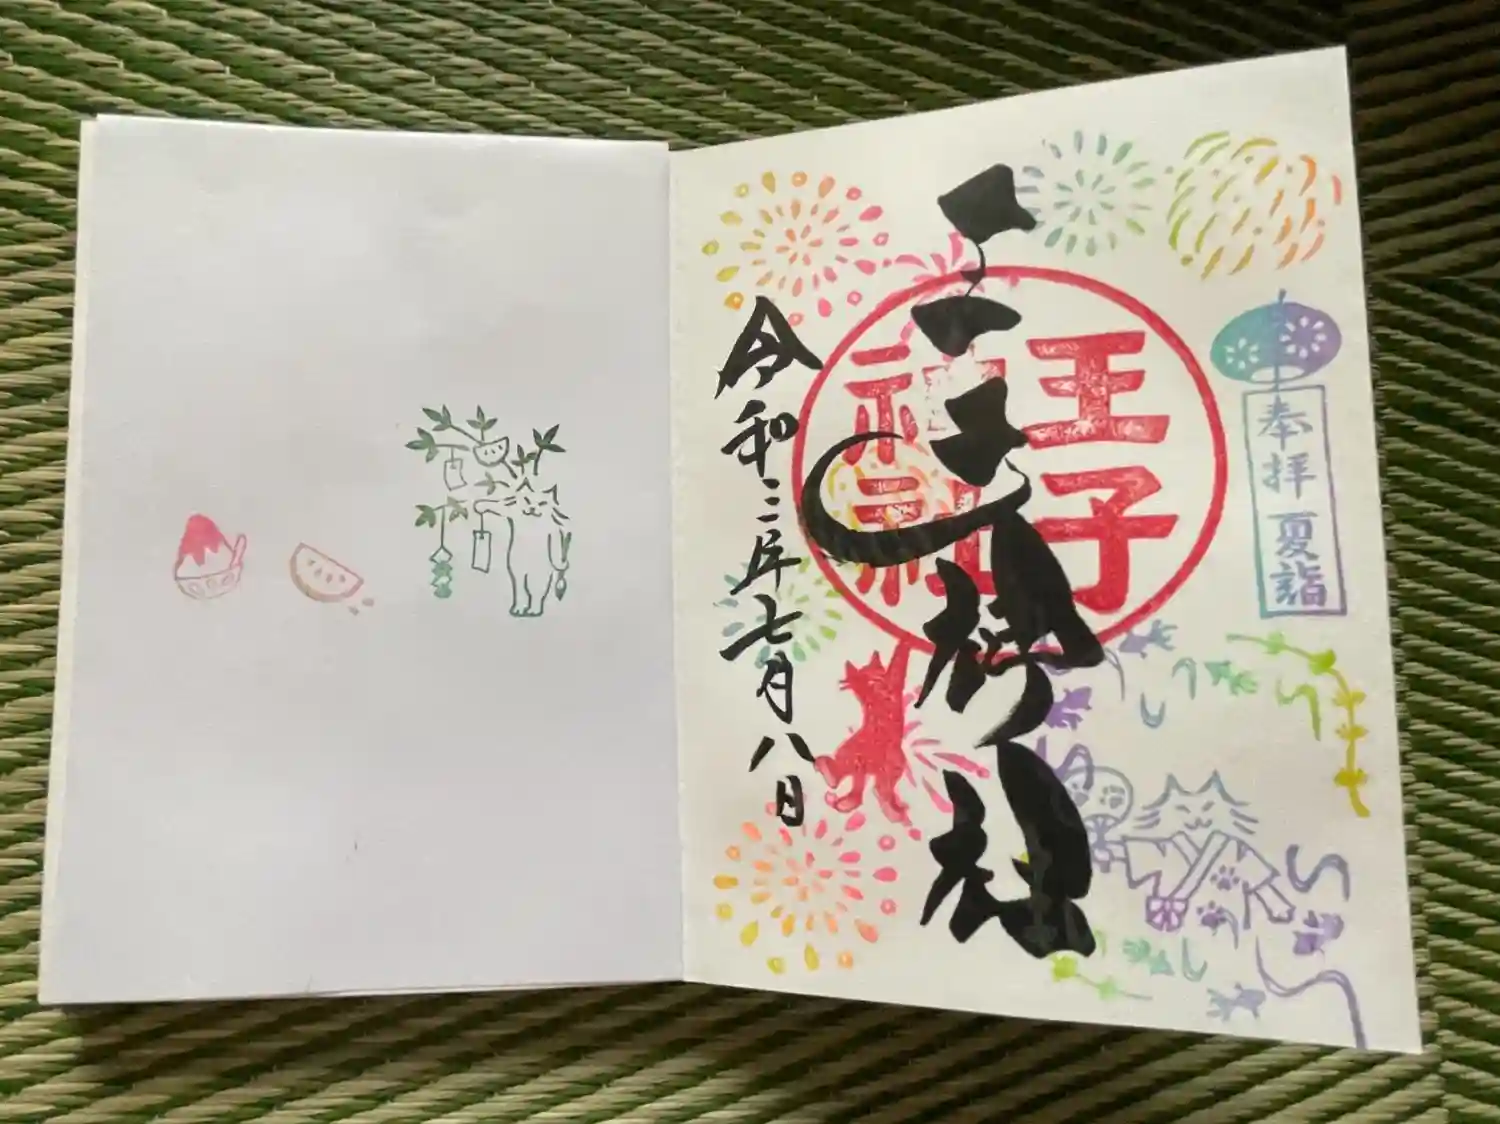 奉拝 夏詣
王子神社
王子神社
令和三年七月八日